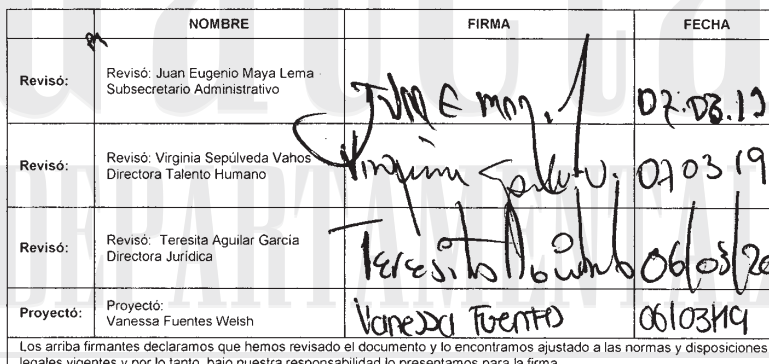 NOMBRE FIRMA FECHA
Revisó: Revisó: Juan Eugenio Maya Lema
Subsecretario Administrativo
07.03.19
Revisó: Revisó: Virginia Sepúlveda Vahos
Directora Talento Humano
Virginia 07 03 19
Revisó: Revisó: Teresita Aguilar García
Directora Jurídica
Teresita 06/03/20
Proyectó: Proyectó:
Vanessa Fuentes Welsh
Vanessa Fuentes 06/03/19
Los arriba firmantes declaramos que hemos revisado el documento y lo encontramos ajustado a las normas y disposiciones
legales vigentes y por lo tanto, bajo nuestra responsabilidad lo presentamos para la firma
DEPARTAMENTAL